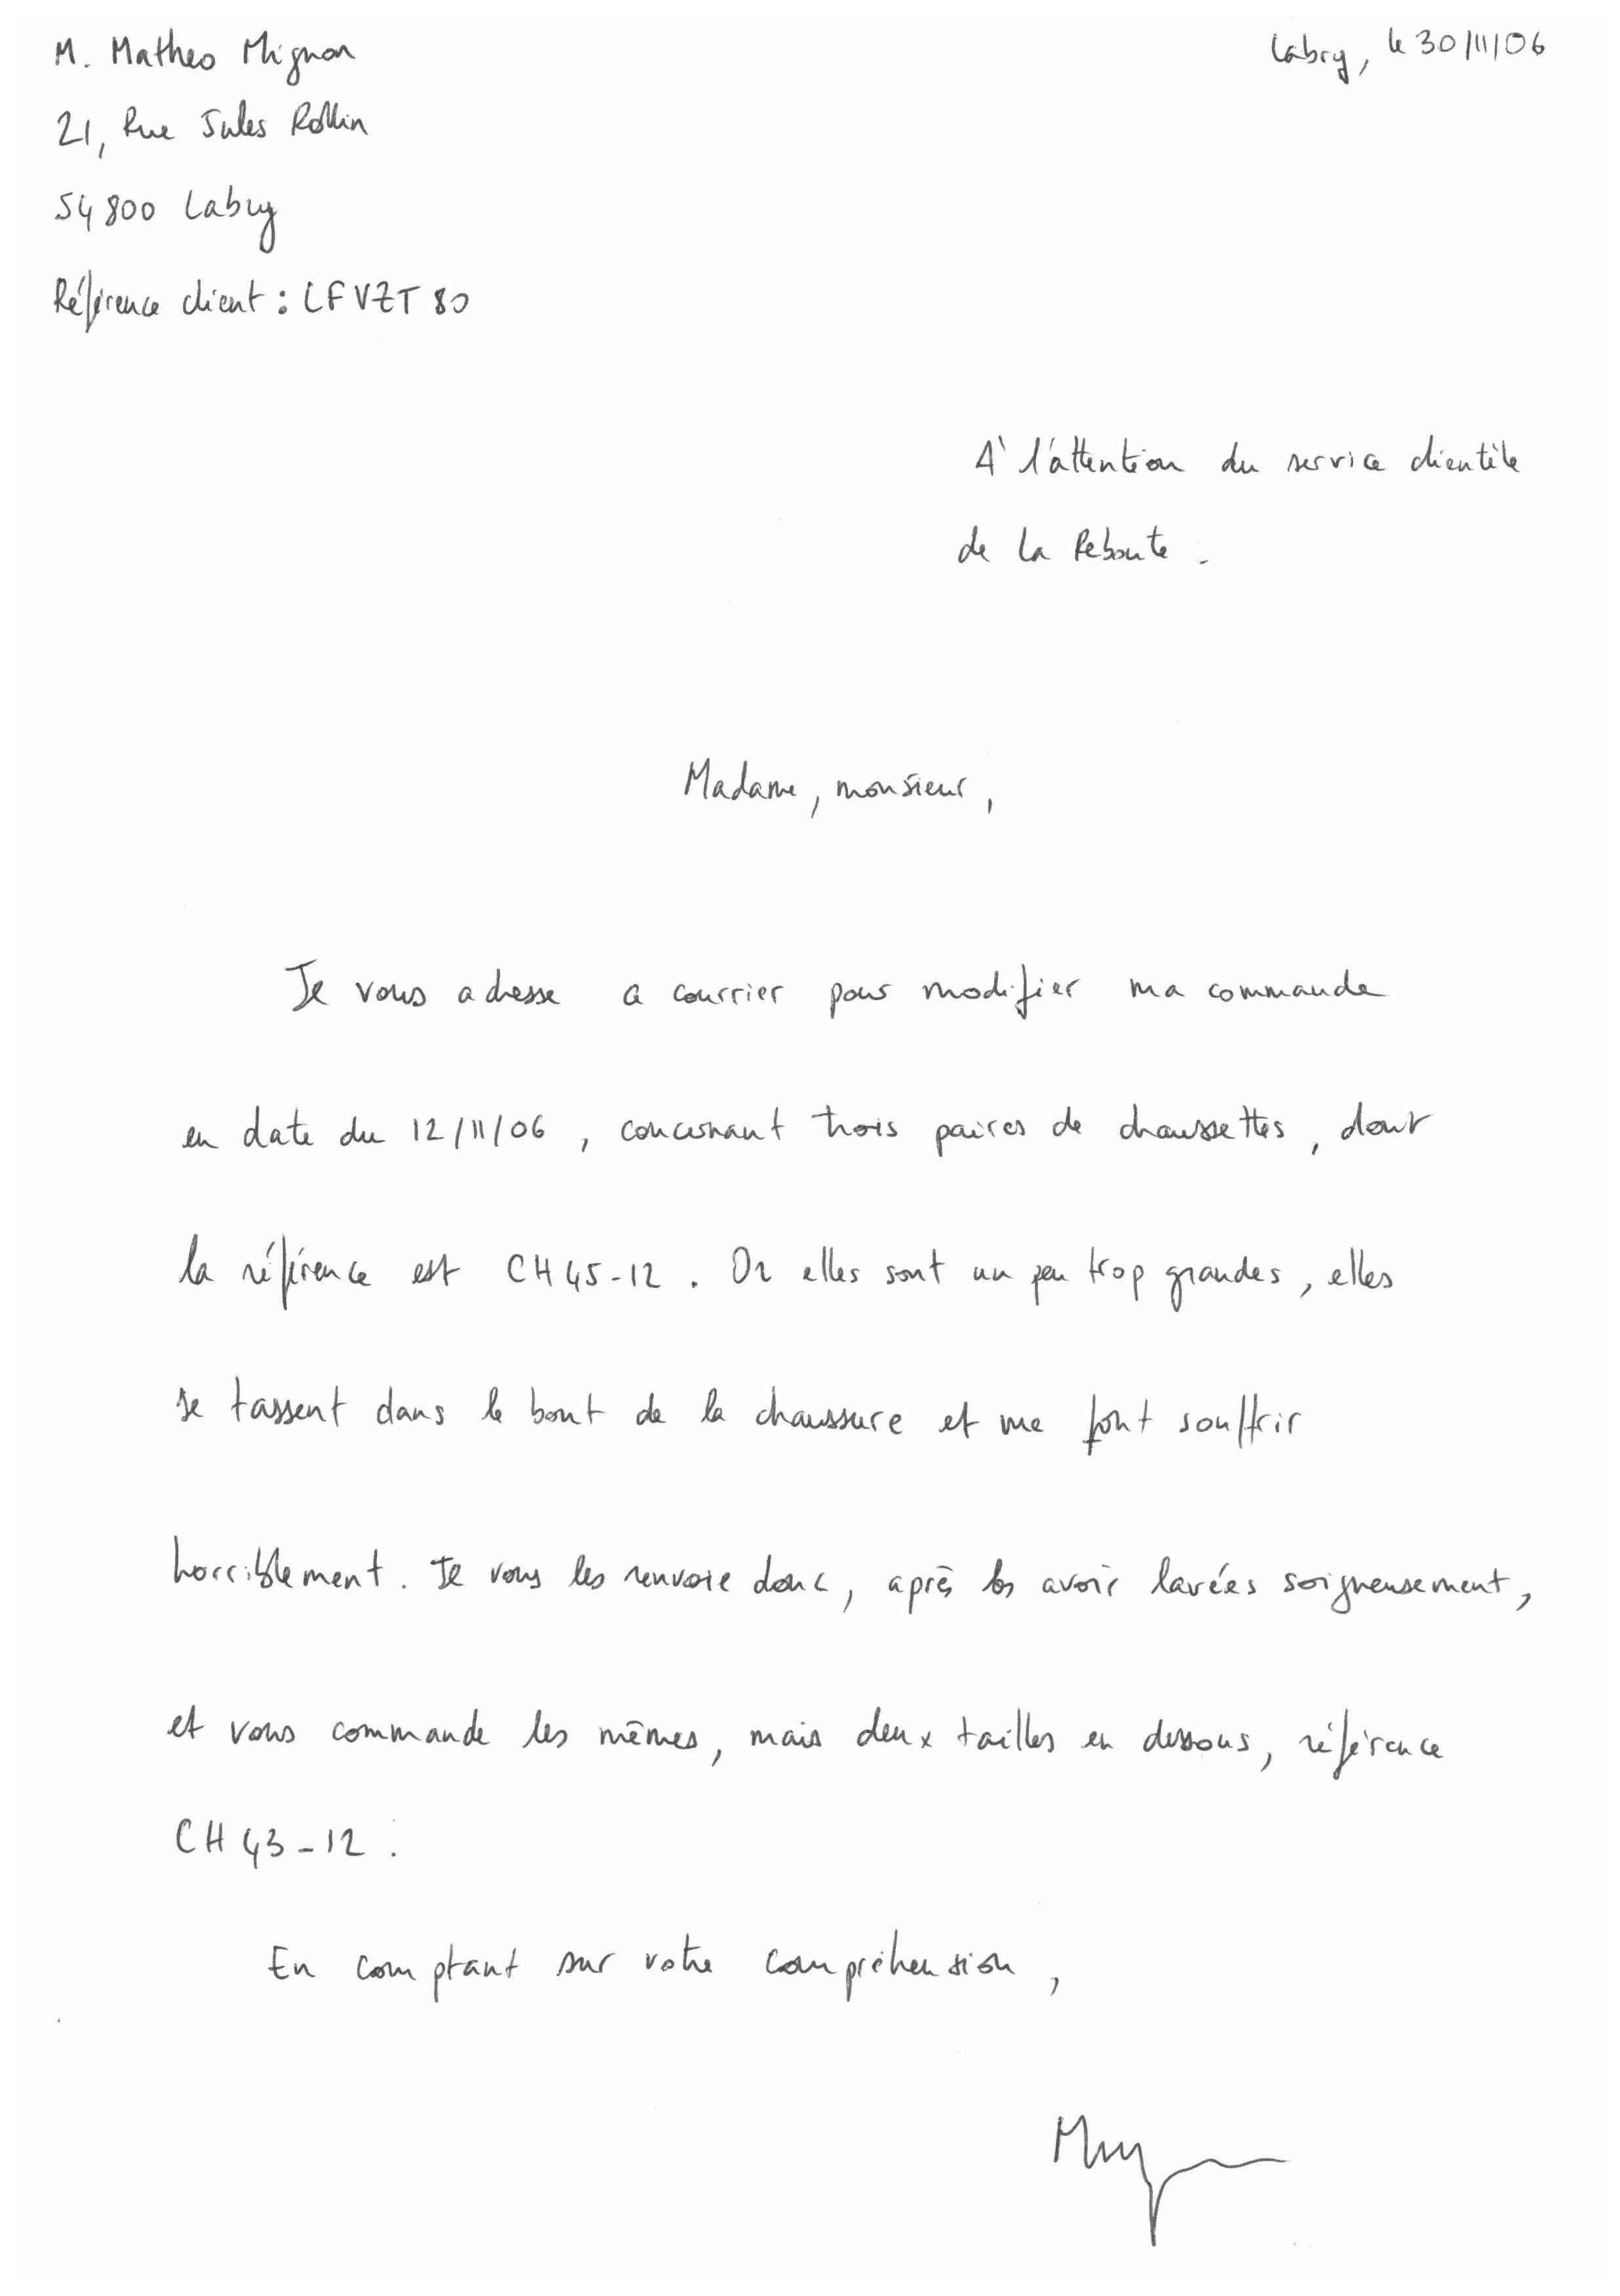 M. Matheo Mignon
Labry, le 30/11/06
21, Rue Jules Rollin
54800 Labry
Référence client : LFVZT80
A' l'attention du service clientèle
de la Reboute.
Madame, monsieur,
Je vous adresse ce courrier pour modifier ma commande
en date du 12/11/06, concernant trois paires de chaussettes, dont
la référence est CH45-12. Or elles sont un peu trop grandes, elles
se tassent dans le bout de la chaussure et me font souffrir
horriblement. Je vous les renvoie donc, après les avoir lavées soigneusement,
et vous commande les mêmes, mais deux tailles en dessous, référence
CH43-12.
En comptant sur votre compréhension,